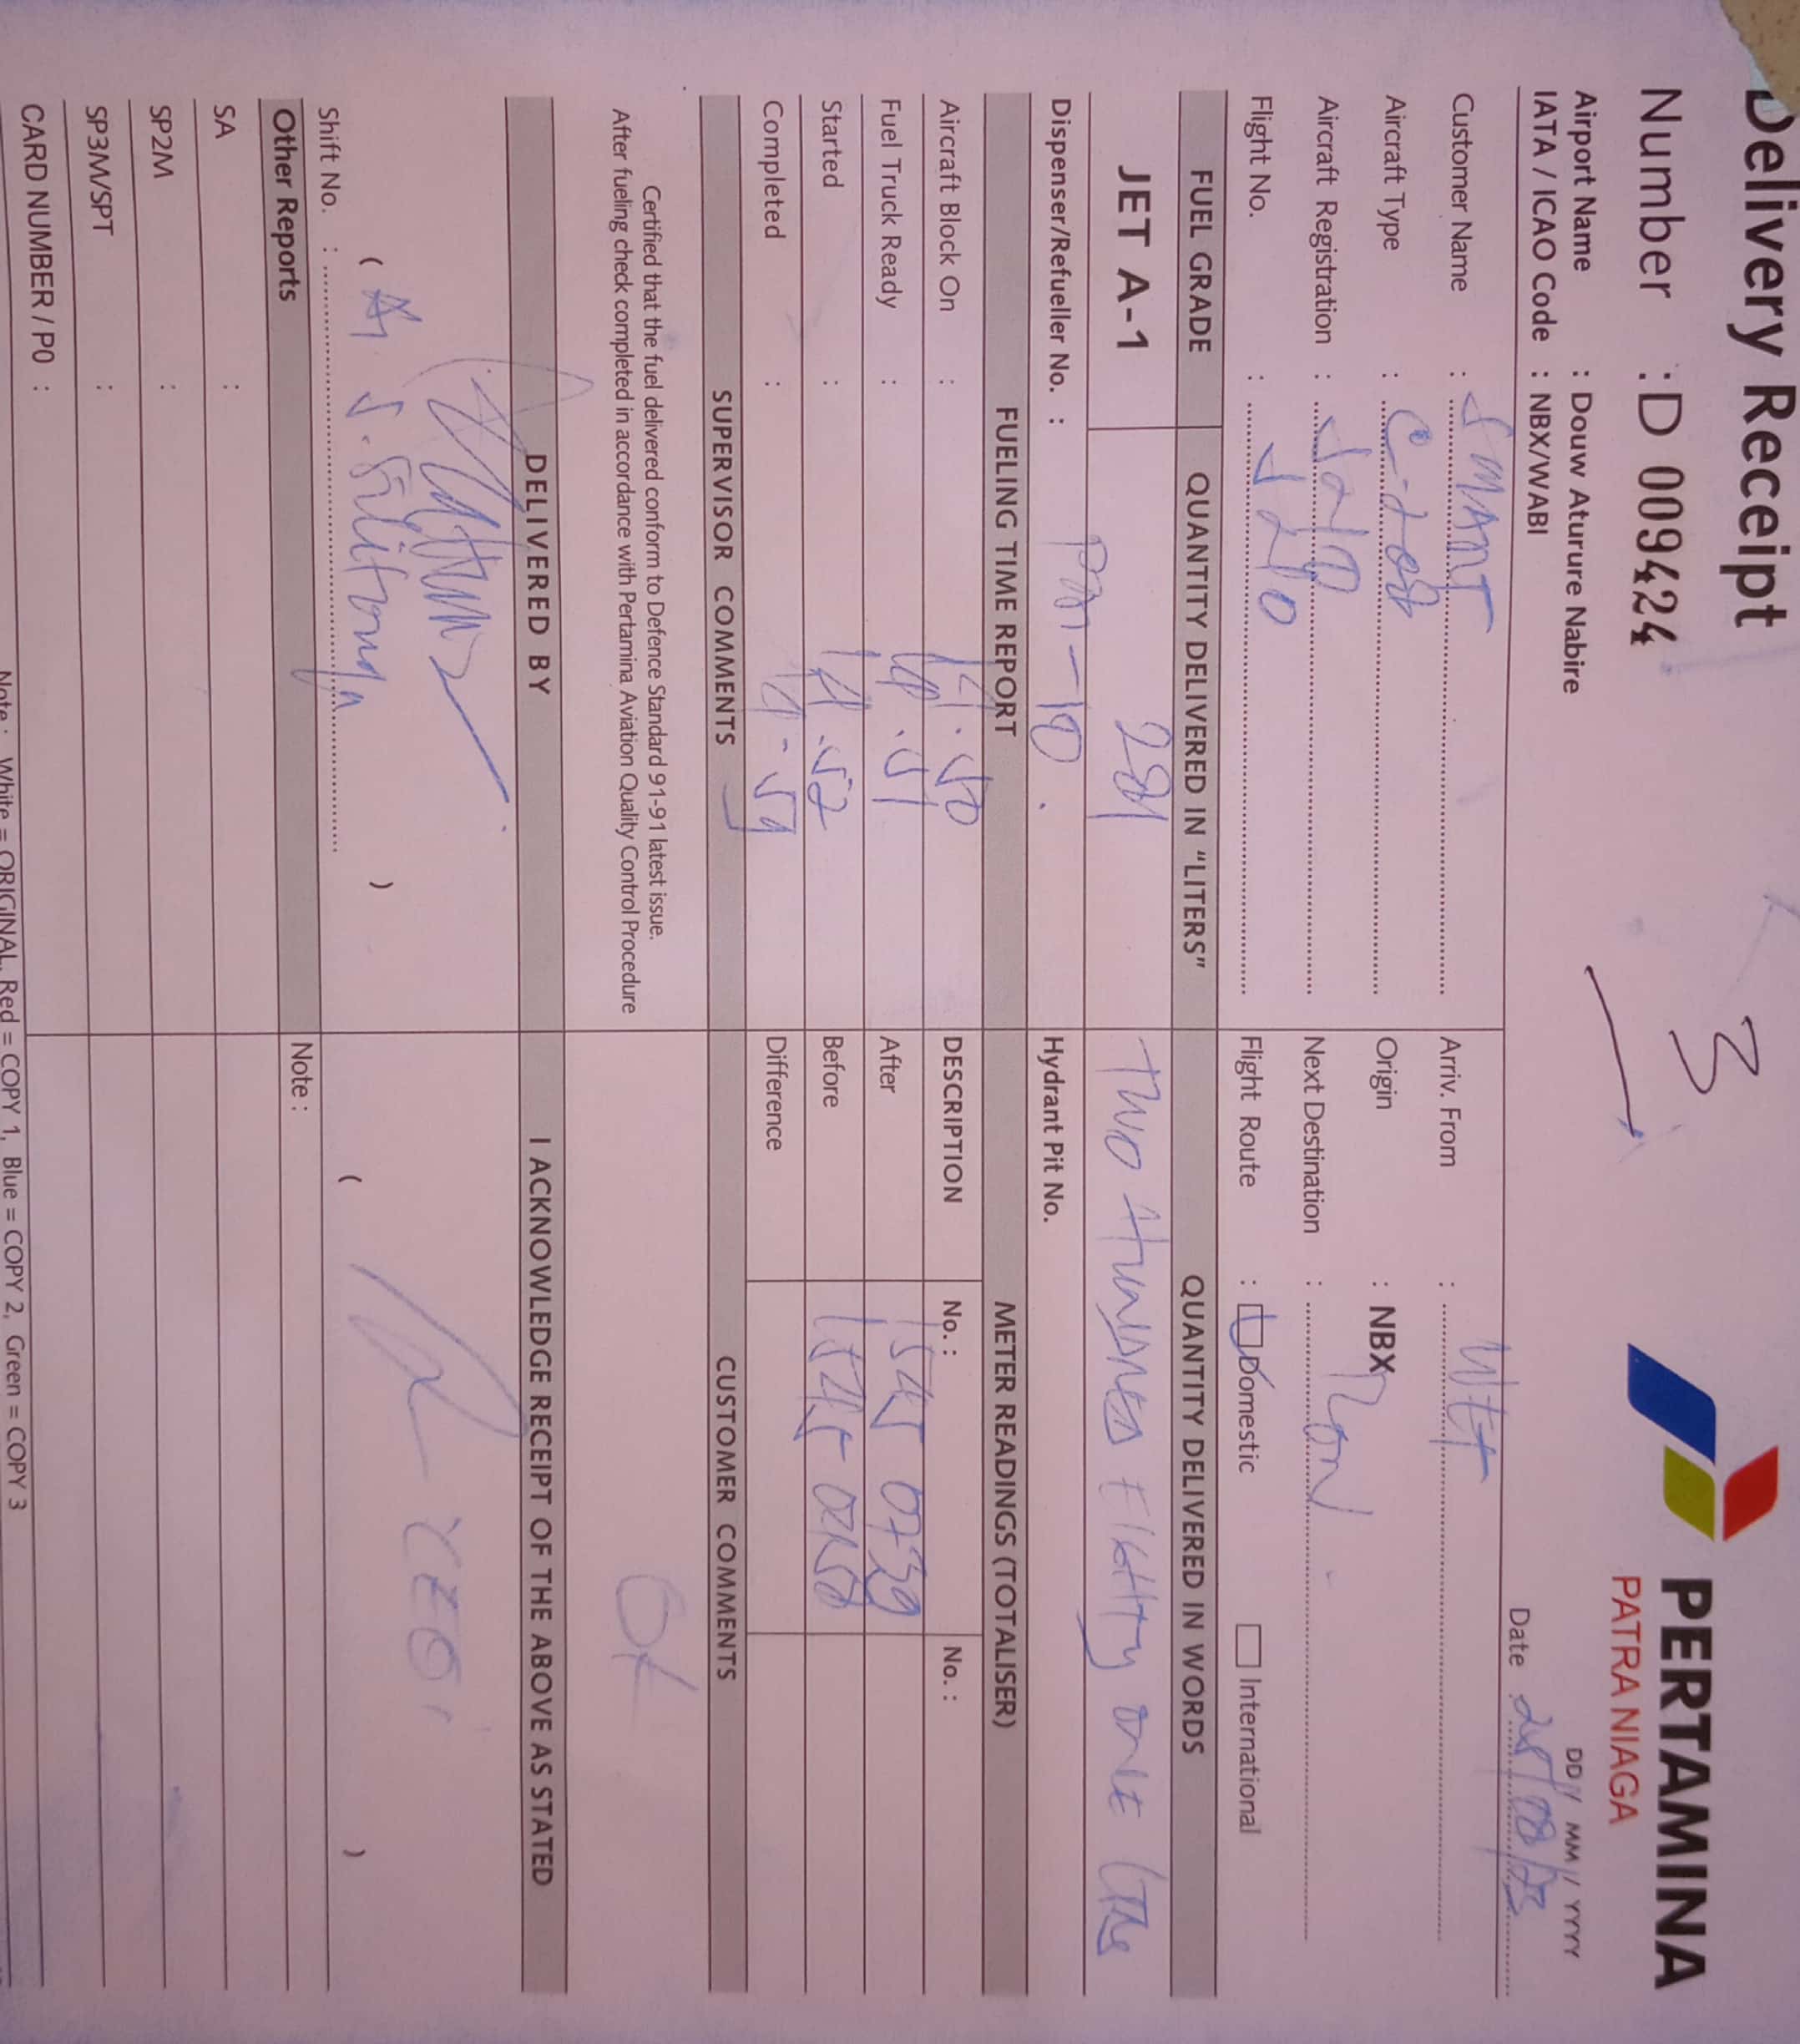 Delivery Receipt
PERTAMINA
PATRA NIAGA
Number : D 009424
3
Airport Name : Douw Aturure Nabire
IATA / ICAO Code : NBX/WABI
DD / MM / YYYY
Date
Customer Name : SMART
Arriv. From :
Aircraft Type : C-208
Origin : NBX
Aircraft Registration :
Next Destination :
Flight No. :
Flight Route : Domestic International
FUEL GRADE QUANTITY DELIVERED IN "LITERS" QUANTITY DELIVERED IN WORDS
JET A-1 281 TWO HUNDRED EIGHTY ONE
Dispenser/Refueller No. :
Hydrant Pit No.
FUELING TIME REPORT METER READINGS (TOTALISER)
Aircraft Block On : 14.50 DESCRIPTION No. : No. :
Fuel Truck Ready : 14.51 After
Started : 14.52 Before
Completed : Difference
SUPERVISOR COMMENTS CUSTOMER COMMENTS
Certified that the fuel delivered conform to Defence Standard 91-91 latest issue.
After fueling check completed in accordance with Pertamina Aviation Quality Control Procedure
OK
DELIVERED BY I ACKNOWLEDGE RECEIPT OF THE ABOVE AS STATED
( ) ( )
Shift No. :
Other Reports Note :
SA :
SP2M :
SP3M/SPT :
CARD NUMBER / PO :
Note : White = ORIGINAL, Red = COPY 1, Blue = COPY 2, Green = COPY 3